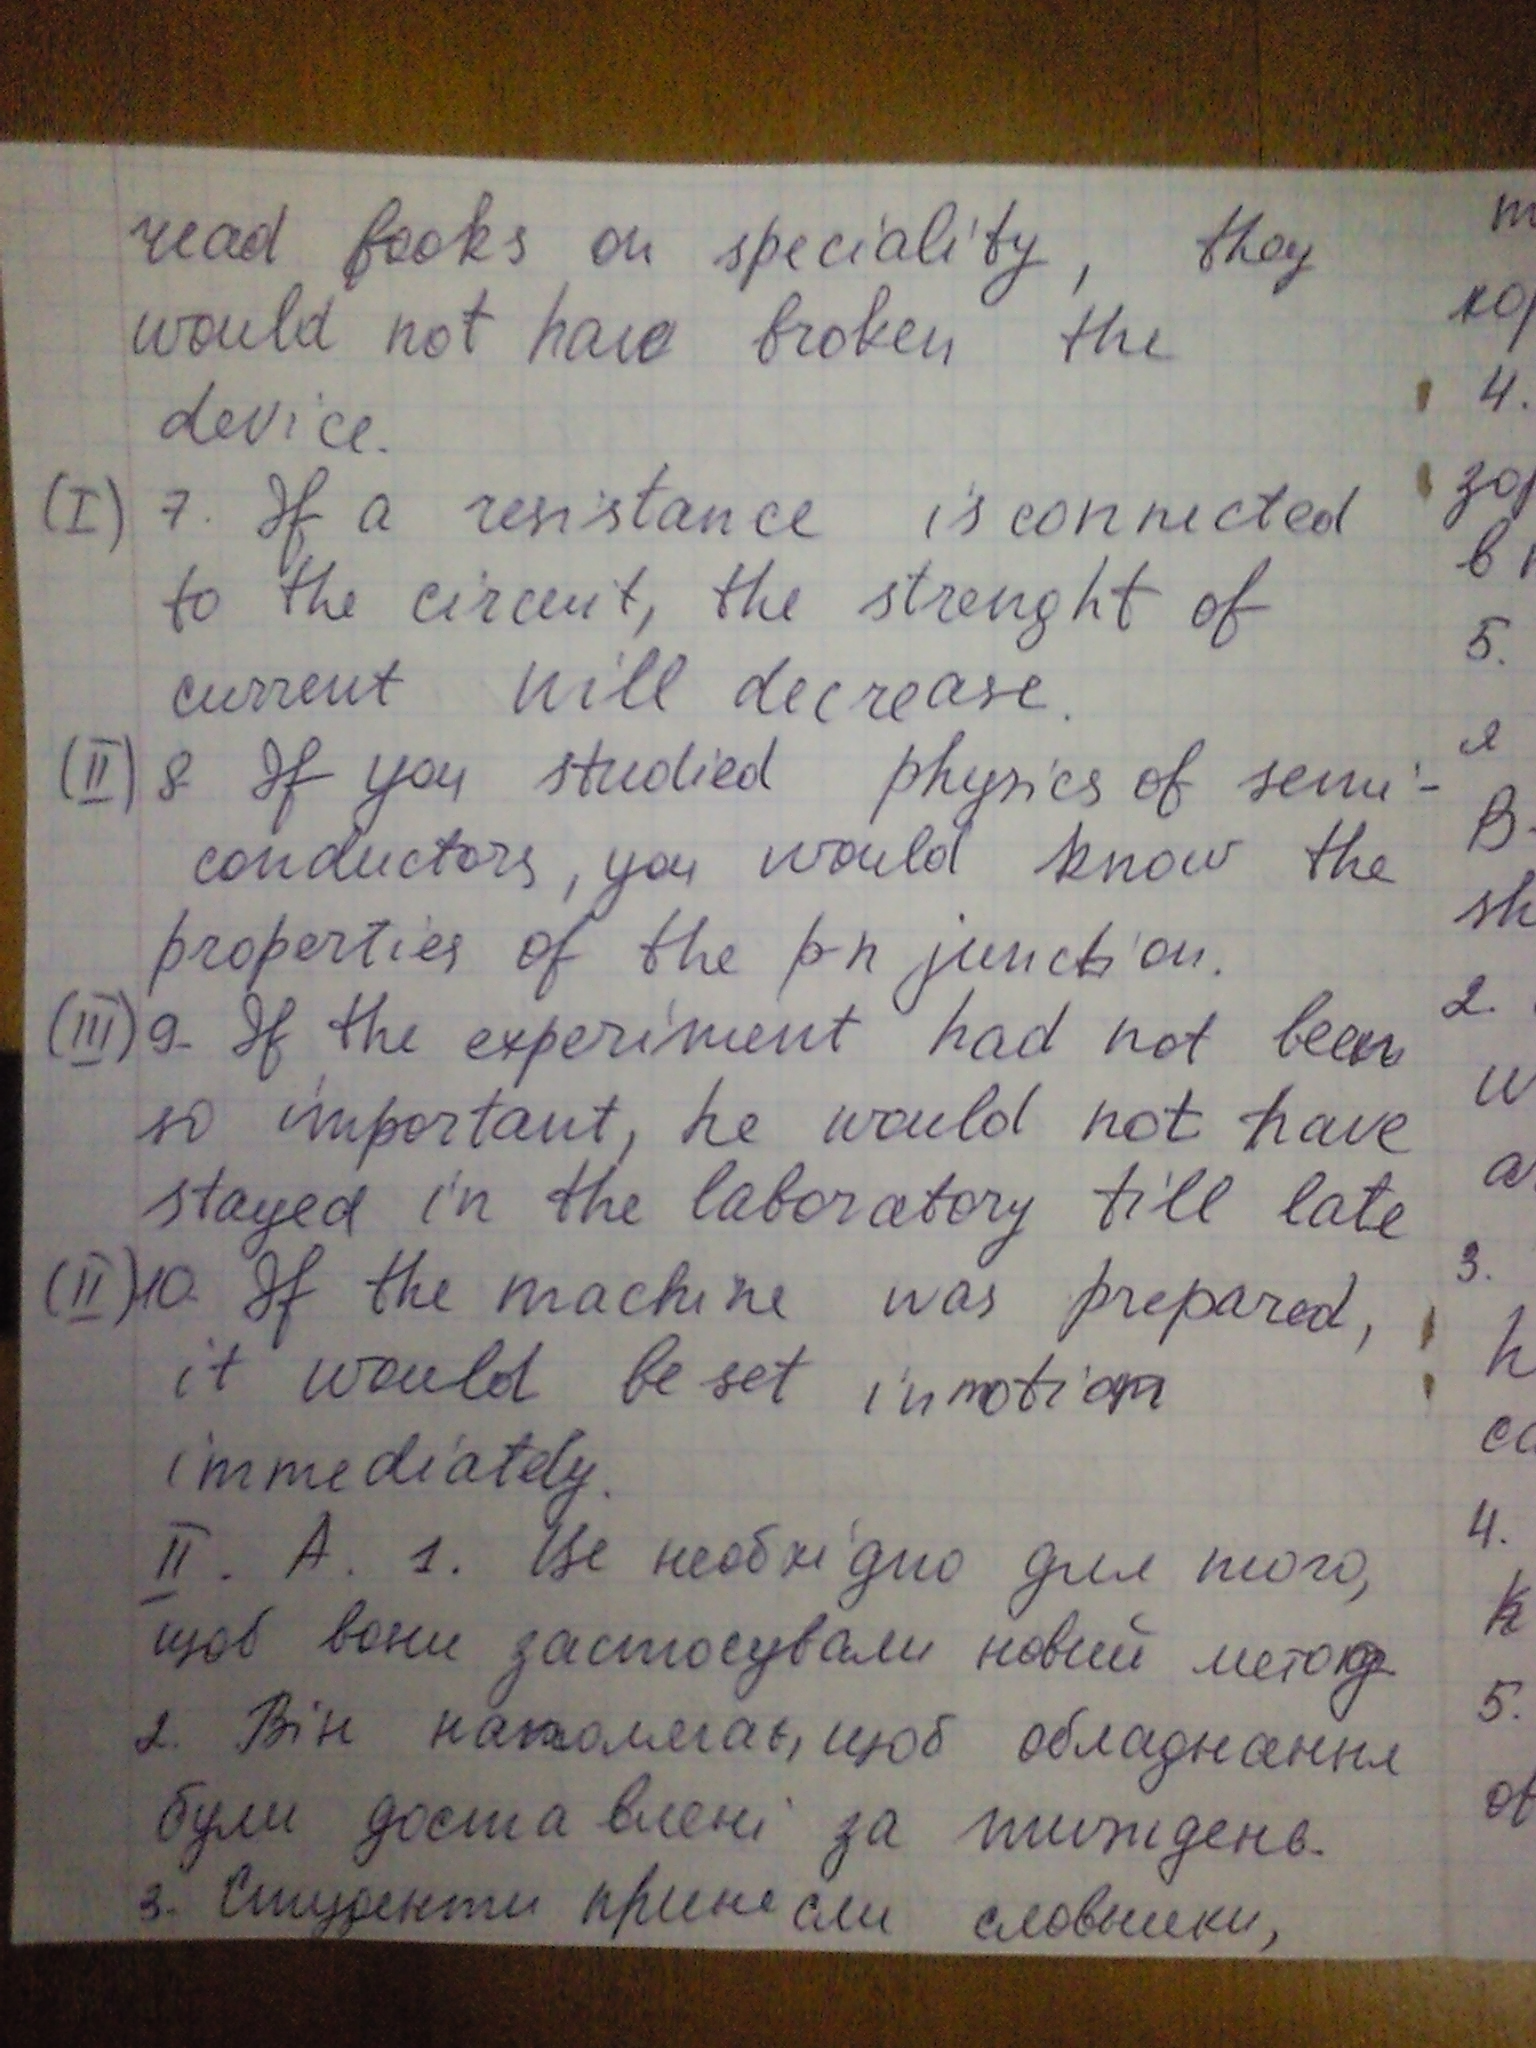 read books on speciality, they
would not have broken the
device.
(I) 7. If a resistance is connected
to the circuit, the strenght of
current will decrease.
(II) 8 If you studied physics of semi-
conductors, you would know the
properties of the p-n junction.
(III) 9. If the experiment had not been
so important, he would not have
stayed in the laboratory till late
(II) 10. If the machine was prepared,
it would be set in motion
immediately.
II. A. 1. Це необхідно для того,
щоб вони застосували новий метод
2. Він наполягає, щоб обладнання
були доставлені за тиждень.
3. Студенти принесли словники,
4.
зор
5.
я
sh
2.
3.
4.
5.